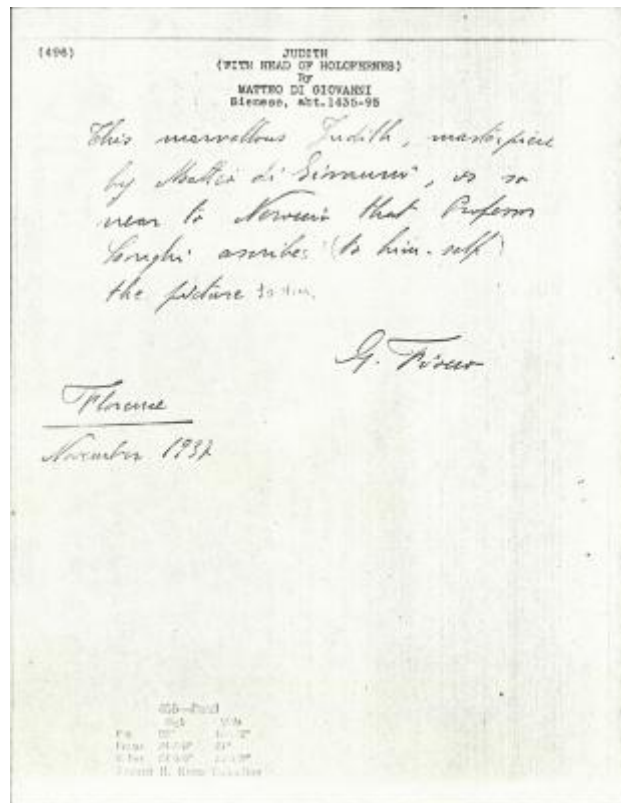 (496)
JUDITH
(WITH HEAD OF HOLOFERNES)
By
MATTEO DI GIOVANNI
Sienese, abt.1435-95
This marvellous Judith, masterpiece
by Matteo di Giovanni, is so
near to that Professor
Longhi ascribes (to him-self)
the picture to him.
G. Fiocco
Florence
November 1937
High
Frame